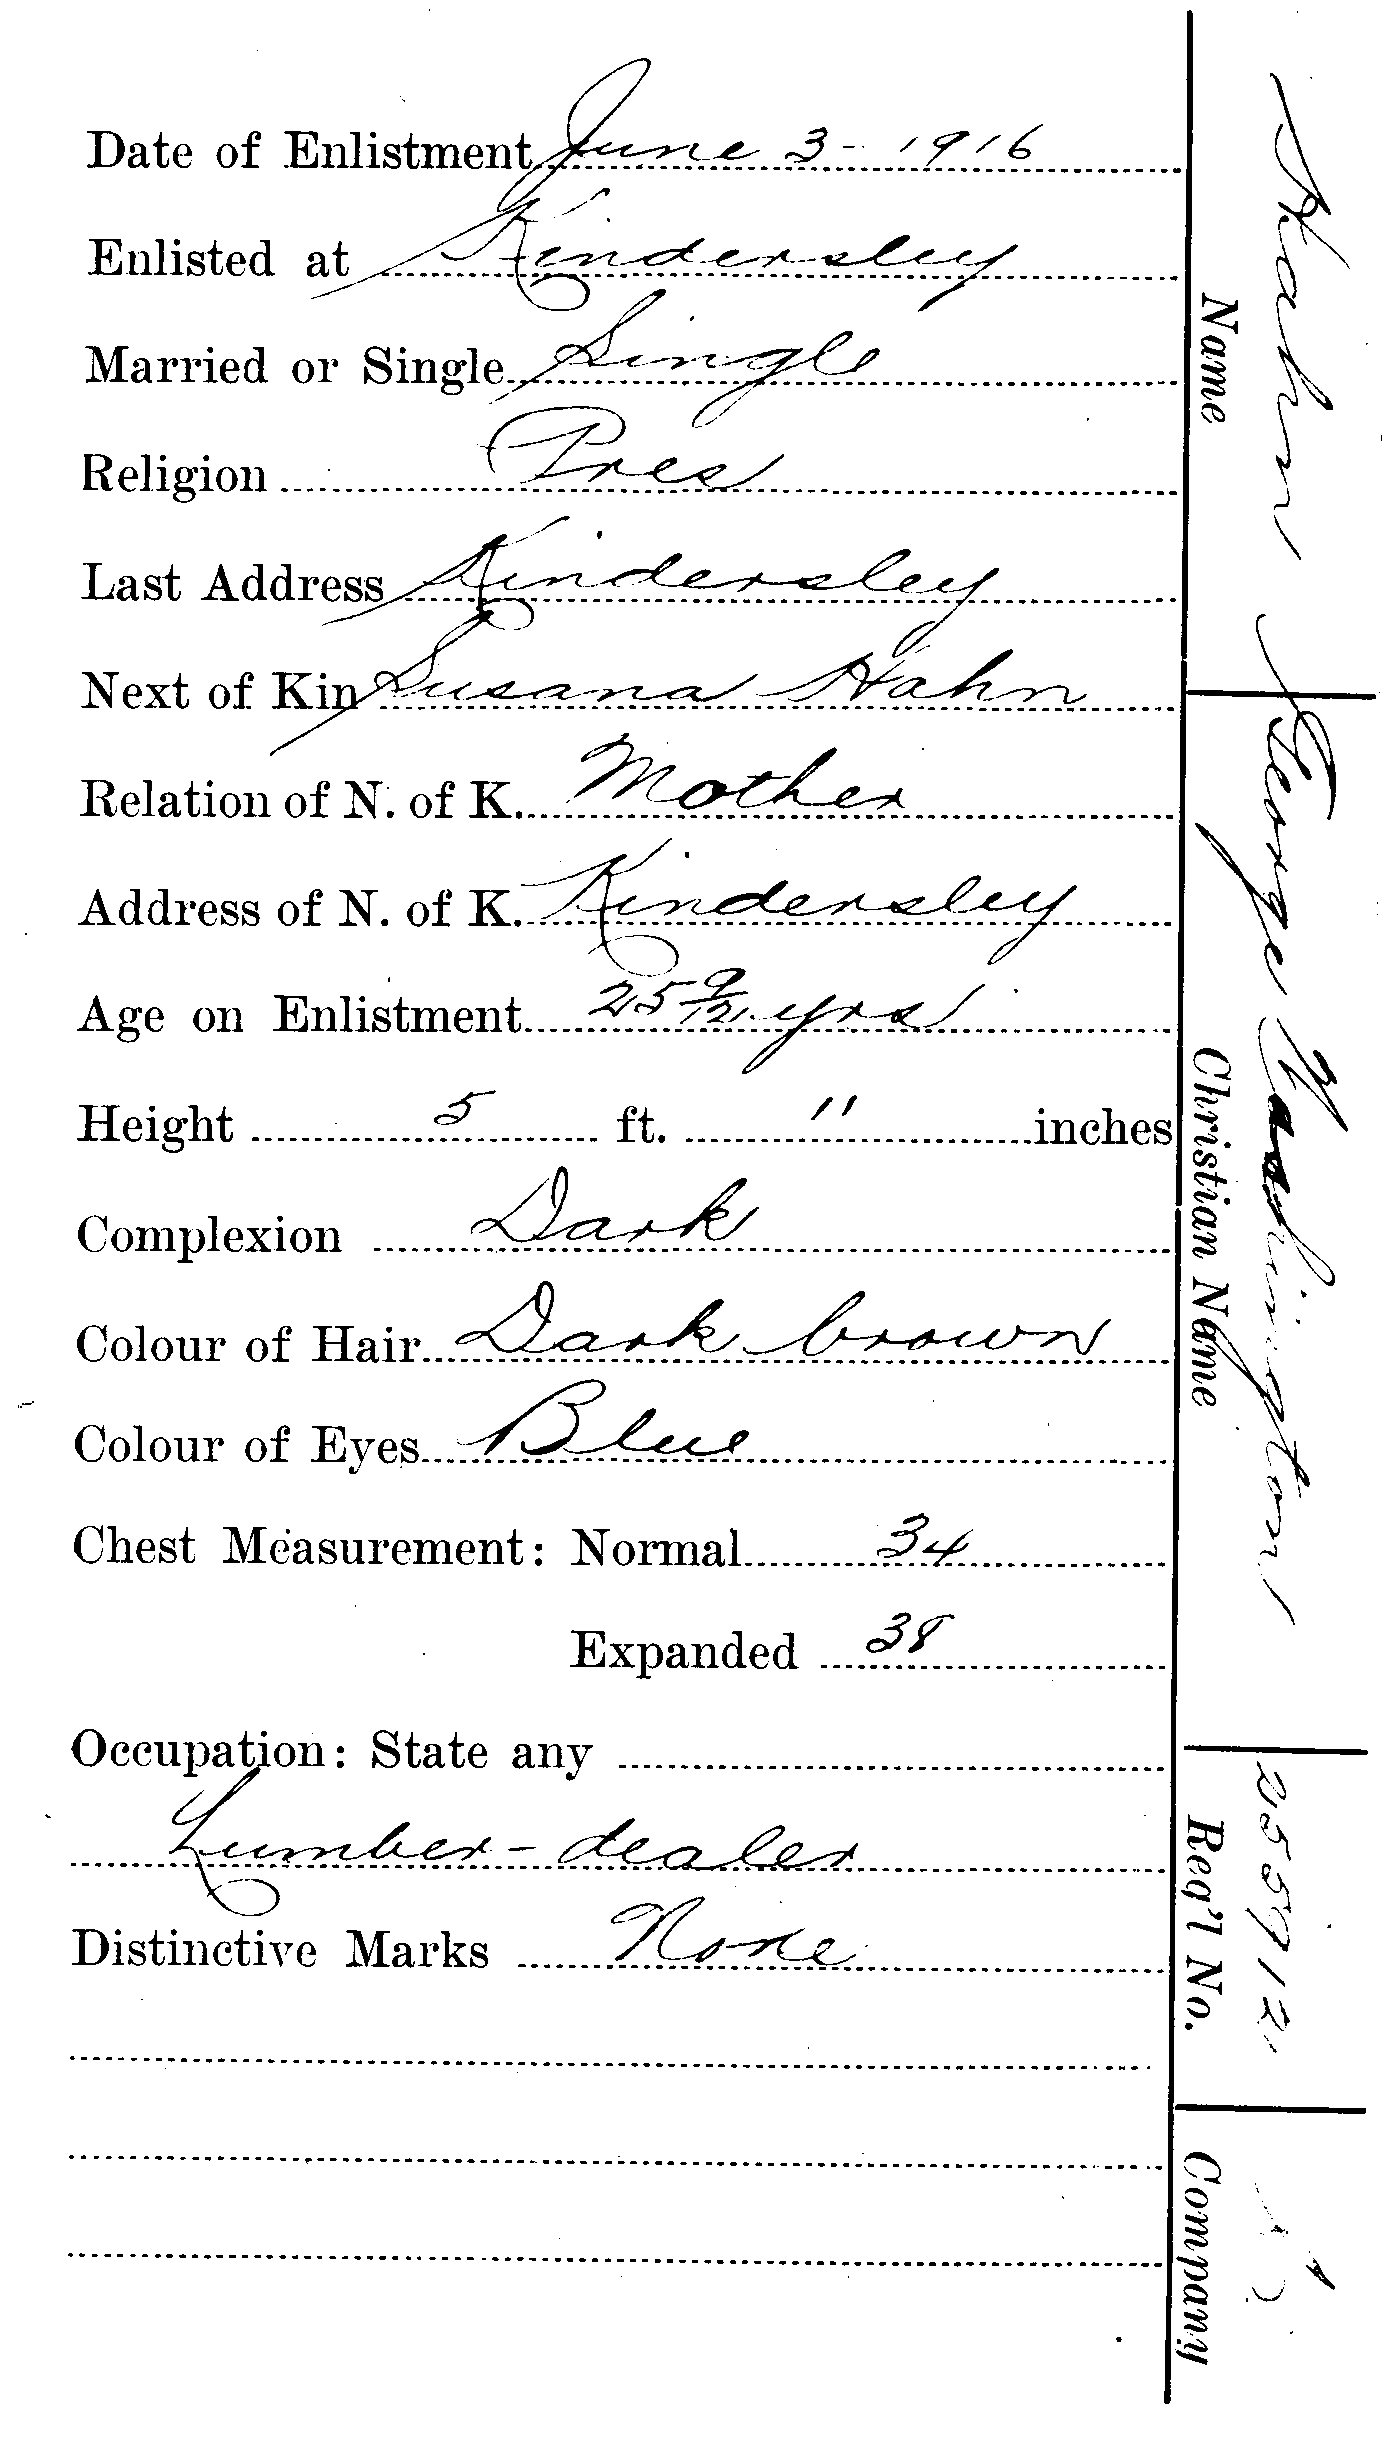 Date of Enlistment June 3 - 1916
Enlisted at Kindersley
Married or Single Single
Religion Pres
Last Address Kindersley
Next of Kin Susana Hahn
Relation of N. of K. Mother
Address of N. of K. Kindersley
Age on Enlistment 25 9/12 yrs
Height 5 ft. 11 inches
Complexion Dark
Colour of Hair Dark brown
Colour of Eyes Blue
Chest Measurement: Normal 34
Expanded 38
Occupation: State any
Lumber-dealer
Distinctive Marks None
Hahn George Washington 255912
Name Christian Name Reg'l No. Company